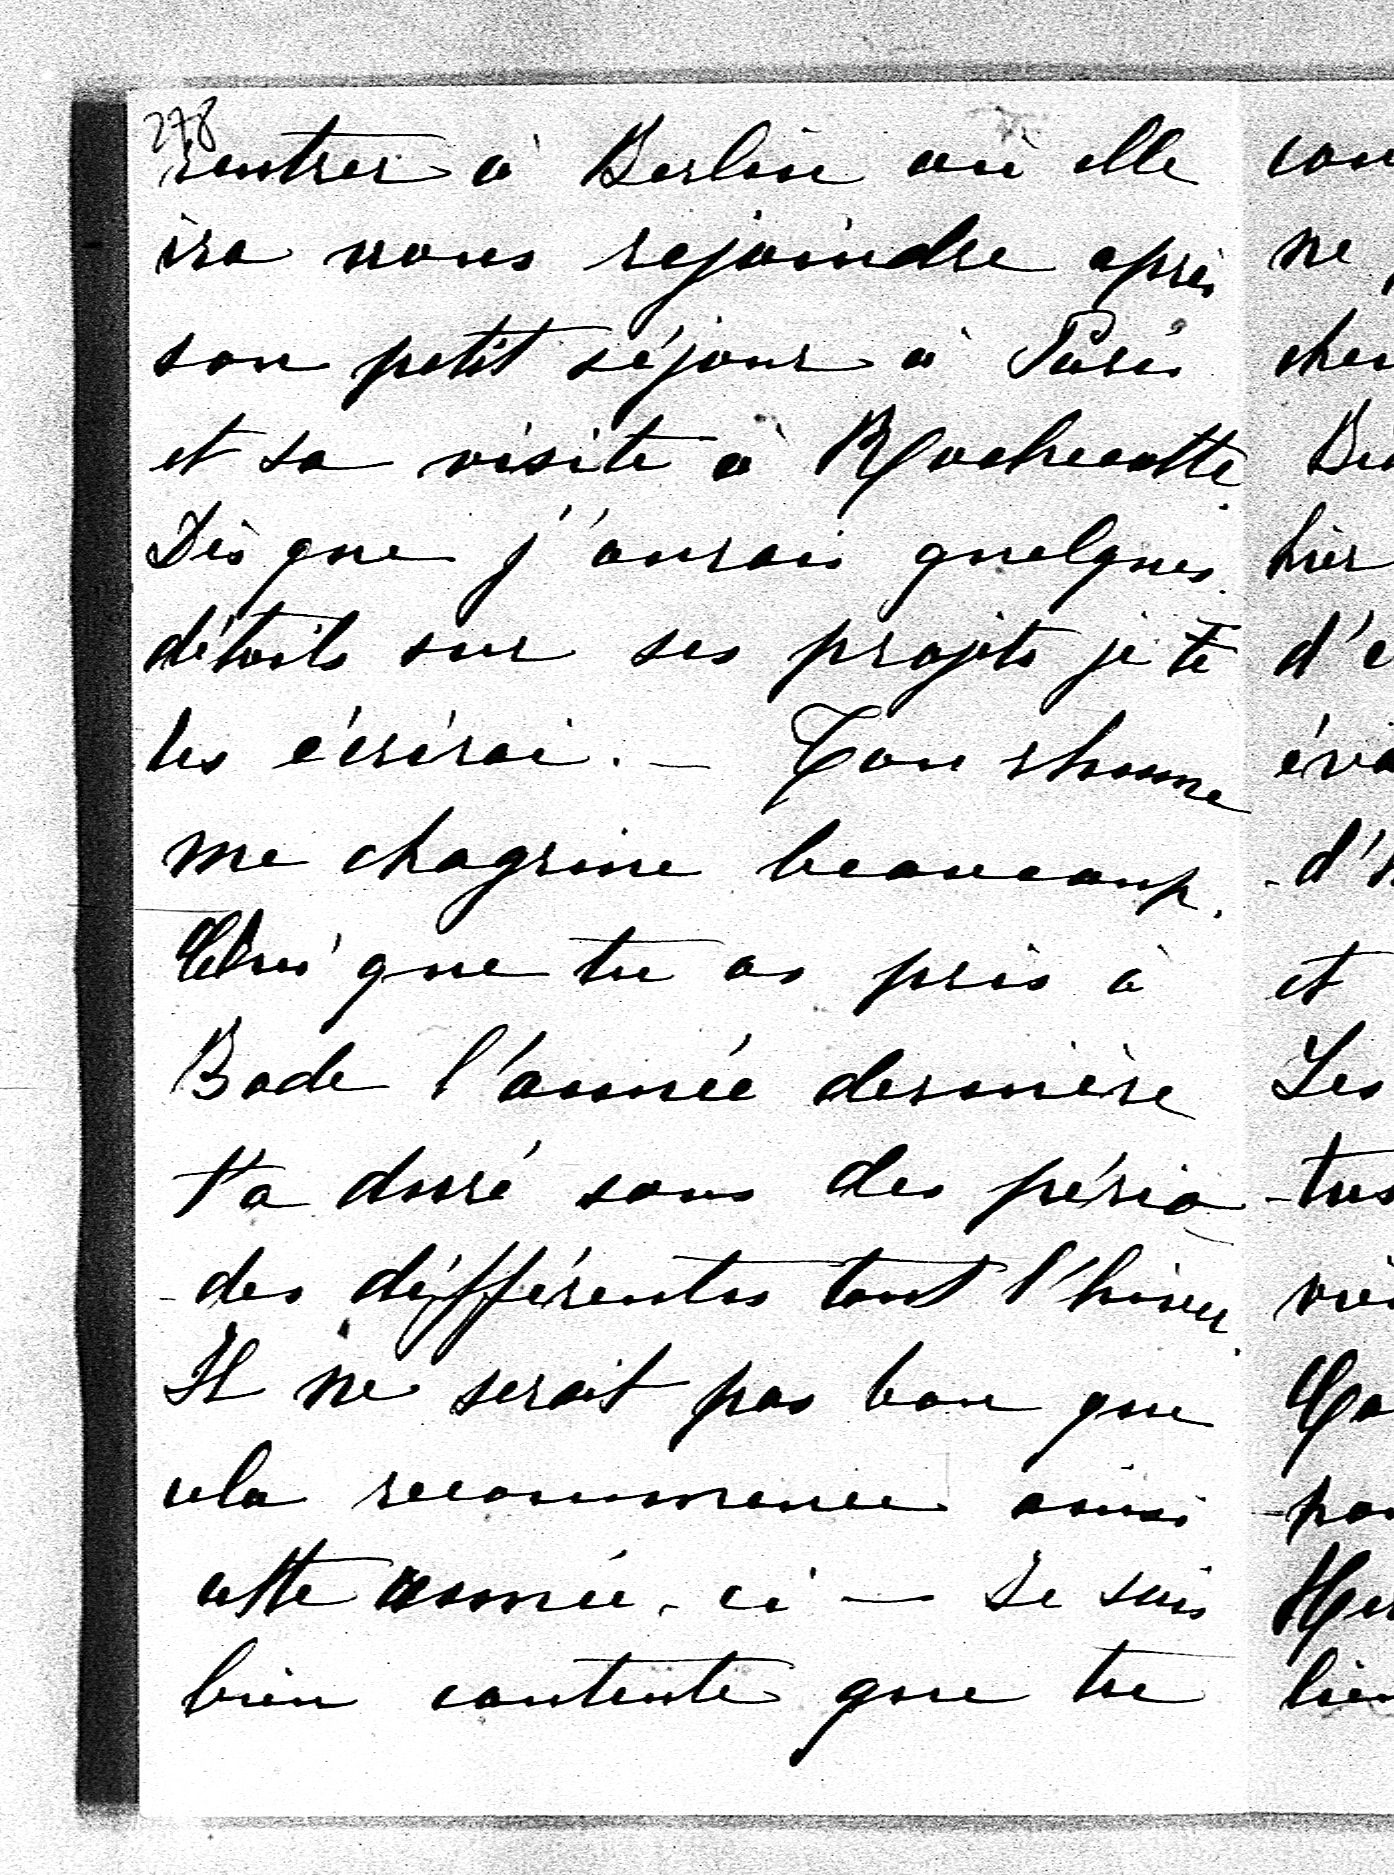 278
rentrer à Berlin où elle
ira nous rejoindre après
son petit séjour à Paris
et sa visite à Rochecotte.
Dès que j'aurais quelques
détails sur ses projets je te
les écrirai. — Ton rhume
me chagrine beaucoup.
Celui que tu as pris à
Bade l'année dernière
t'a duré sous des pério
-des différentes tout l'hiver.
Il ne serait pas bon que
cela recommence ainsi
cette année-ci — Je suis
bien contente que tu
ne
et
d'e
Les